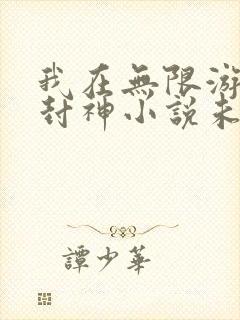 我在無限游
封神小說未
譚少華